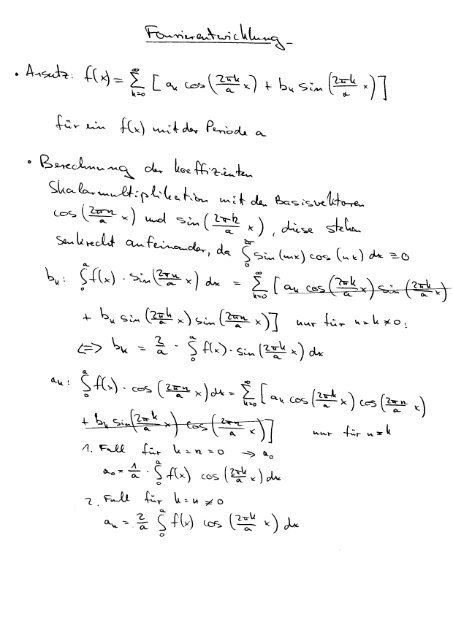 Fourierentwicklung
• Ansatz: f(x) = ∑_{k=0}^{∞} [ a_k cos(2πk/a x) + b_k sin(2πk/a x) ]
für ein f(x) mit der Periode a
• Berechnung der Koeffizienten
Skalarmultiplikation mit den Basisvektoren
cos(2πn/a x) und sin(2πk/a x), diese stehen
senkrecht aufeinander, da ∫ sin(mx) cos(nx) dx = 0
b_k: ∫_0^a f(x) · sin(2πn/a x) dx = ∑_{k=0}^{∞} [ a_k cos(2πk/a x) sin(2πk/a x)
+ b_k sin(2πk/a x) sin(2πn/a x) ] nur für n=k≠0:
<=> b_k = 2/a · ∫_0^a f(x) · sin(2πk/a x) dx
a_k: ∫_0^a f(x) · cos(2πn/a x) dx = ∑_{k=0}^{∞} [ a_k cos(2πk/a x) cos(2πn/a x)
+ b_k sin(2πk/a x) cos(2πn/a x) ] nur für n=k
1. Fall für k=n=0 → a_0
a_0 = 1/a · ∫_0^a f(x) cos(2πk/a x) dx
2. Fall für k=n≠0
a_k = 2/a ∫_0^a f(x) cos(2πk/a x) dx